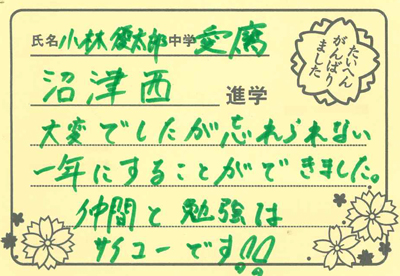 氏名 小林優太郎 中学 愛鷹
沼津西 進学
たいへん
がんばり
ました
大変でしたが忘れられない
一年にすることができました。
仲間と勉強は
サイコーです!!